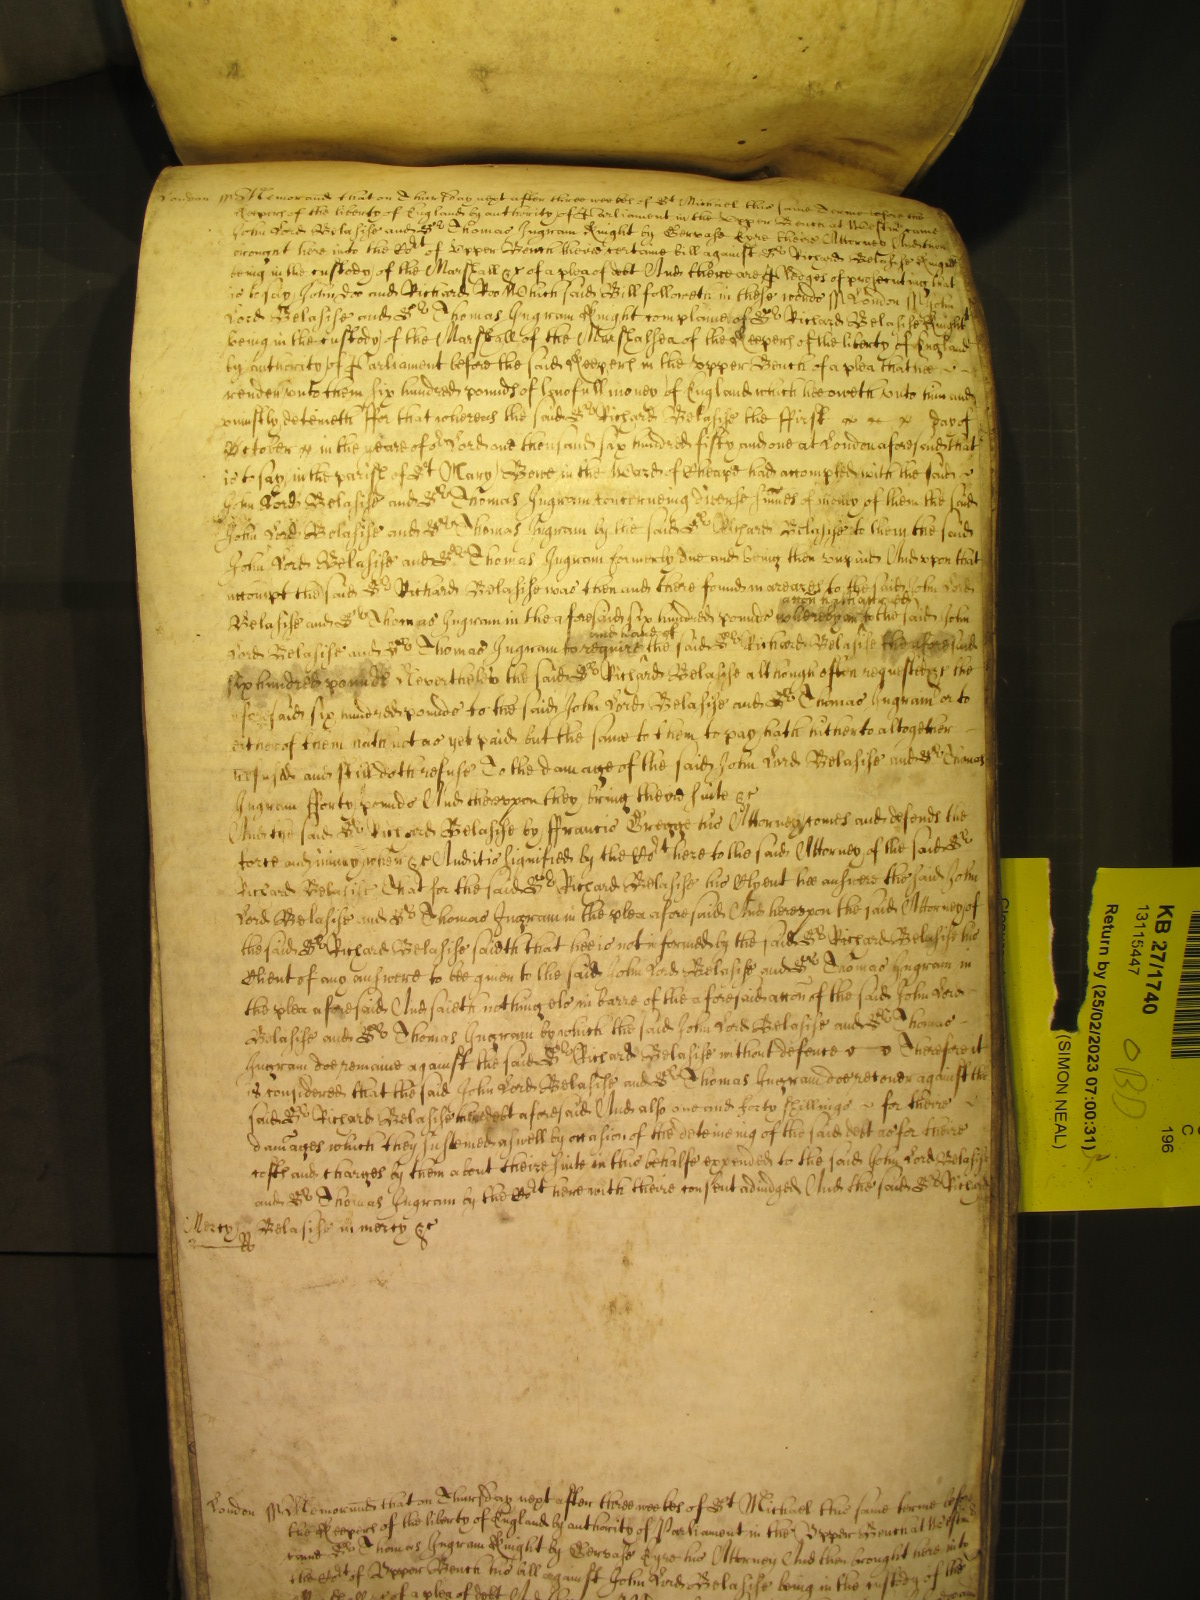 London ss Memorand that on Thursday next after three weekes of St Michael this same Terme before the
Keepers of the liberty of England by authority of Parliament in the Upper Bench at Westm came
John Lord Belasise and Sr Thomas Ingram Knight by Gervase Eyre theire Attorney And then
brought here into the Cort of Upper Bench theire certaine bill against Sr Richard Belasise Knight
being in the custody of the Marshall &c of a plea of debt And there are pledges of prosecuting that
is to say John Doo and Richard Roo Which said Bill followeth in these words ss London ss John
Lord Belasise and Sr Thomas Ingram Knight complaine of Sr Richard Belasise Knight
being in the custody of the Marshall of the Marshalsea of the Keepers of the liberty of England
by authority of Parliament before the said Keepers in the Upper Bench of a plea that hee
render unto them six hundred pounds of lawfull money of England which hee oweth unto him and
uniustly deteineth ffor that whereas the said Sr Richard Belasise the ffirst day of
October in the yeare of or Lord one thousand six hundred fifty and one at London aforesaid that
is to say in the parish of St Mary Bowe in the Ward of Cheape had accompted with the said
John Lord Belasise and Sr Thomas Ingram concerneing diverse summes of money of them the said
John Lord Belasise and Sr Thomas Ingram by the said Sr Richard Belasise to them the said
John Lord Belasise and Sr Thomas Ingram formerly due and being then unpaid And upon that
accompt the said Sr Richard Belasise was then and there found in arreares to the said John Lord
Belasise and Sr Thomas Ingram in the aforesaid six hundred pounds whereby accon hath accrued to the said John
Lord Belasise and Sr Thomas Ingram to require and have of the said Sr Richard Belasise the aforesaid
six hundred pounds Neverthelesse the said Sr Richard Belasise although often requested the
aforesaid six hundred pounds to the said John Lord Belasise and Sr Thomas Ingram or to
either of them hath not as yet paid but the same to them to pay hath hitherto altogether
refused and still doth refuse To the damage of the said John Lord Belasise and Sr Thomas
Ingram fforty pounds And thereupon they bring theire suite &c
And the said Sr Richard Belasise by ffrancis Gregge his Attorney comes and defends the
force and iniury when &c And it is signified by the Cort here to the said Attorney of the said Sr
Richard Belasise That for the said Sr Richard Belasise his Clyent hee answere the said John
Lord Belasise and Sr Thomas Ingram in the plea aforesaid And hereupon the said Attorney of
the said Sr Richard Belasise saith that hee is not informed by the said Sr Richard Belasise his
Clyent of any answere to bee given to the said John Lord Belasise and Sr Thomas Ingram in
the plea aforesaid And saieth nothing els in barre of the aforesaid accon of the said John Lord
Belasise and Sr Thomas Ingram by which the said John Lord Belasise and Sr Thomas
Ingram doe remaine against the said Sr Richard Belasise without defence Therefore it
is considered that the said John Lord Belasise and Sr Thomas Ingram doe recover against the
said Sr Richard Belasise theire debt aforesaid And also one and forty shillings for theire
damages which they susteined aswell by occasion of the deteineing of the said debt as for theire
costs and charges by them about theire suite in this behalfe expended to the said John Lord Belasise
and Sr Thomas Ingram by the Cort here with theire consent adiudged And the said Sr Richard
Mercy Belasise in mercy &c
London ss Memorand that on Thursday next after three weekes of St Michael this same terme before
the Keepers of the liberty of England by authority of Parliament in the Upper Bench at Westm
came Sr Thomas Ingram Knight by Gervase Eyre his Attorney And then brought here into
the Cort of Upper Bench his bill against John Lord Belasise being in the custody of the
of a plea of debt And
KB 27/1740
13115447
Return by (25/02/2023 07:00:31)
(SIMON NEAL)
196
C